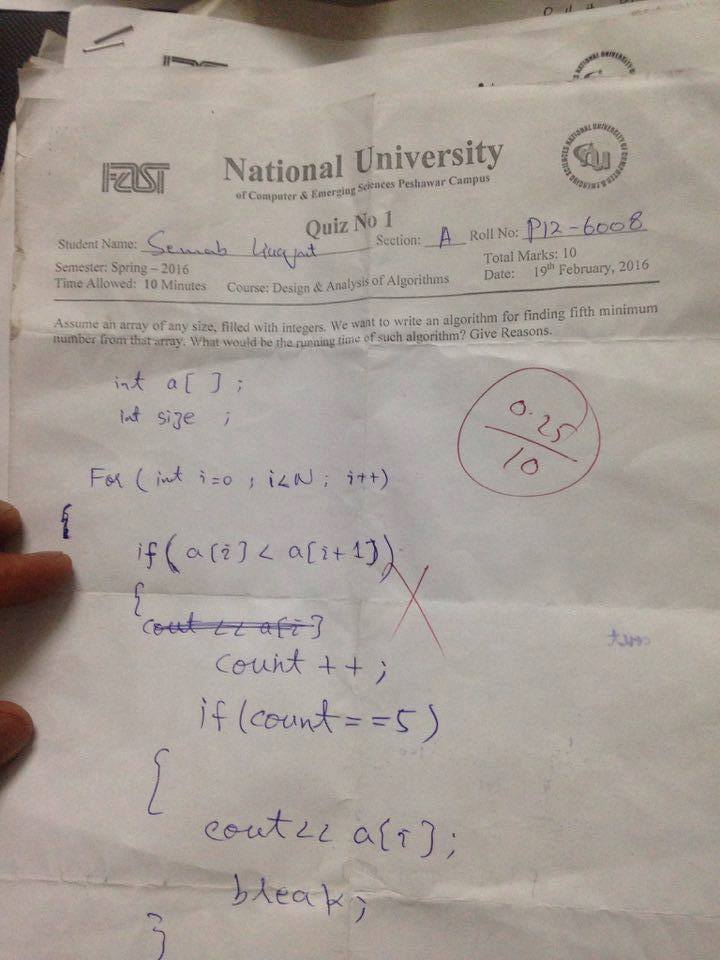 FAST
National University
of Computer & Emerging Sciences Peshawar Campus
Quiz No 1
Student Name: Semab Section: A Roll No: P12-6008
Semester: Spring – 2016 Total Marks: 10
Time Allowed: 10 Minutes Course: Design & Analysis of Algorithms Date: 19th February, 2016
Assume an array of any size, filled with integers. We want to write an algorithm for finding fifth minimum
number from that array. What would be the running time of such algorithm? Give Reasons.
int a[ ] ;
int size ;
0.25
10
For ( int i=0 ; i<N ; i++)
{
if( a[i] < a[i+1])
{
cout << a[i]
count ++ ;
if(count==5)
{
cout<< a[i];
break;
}